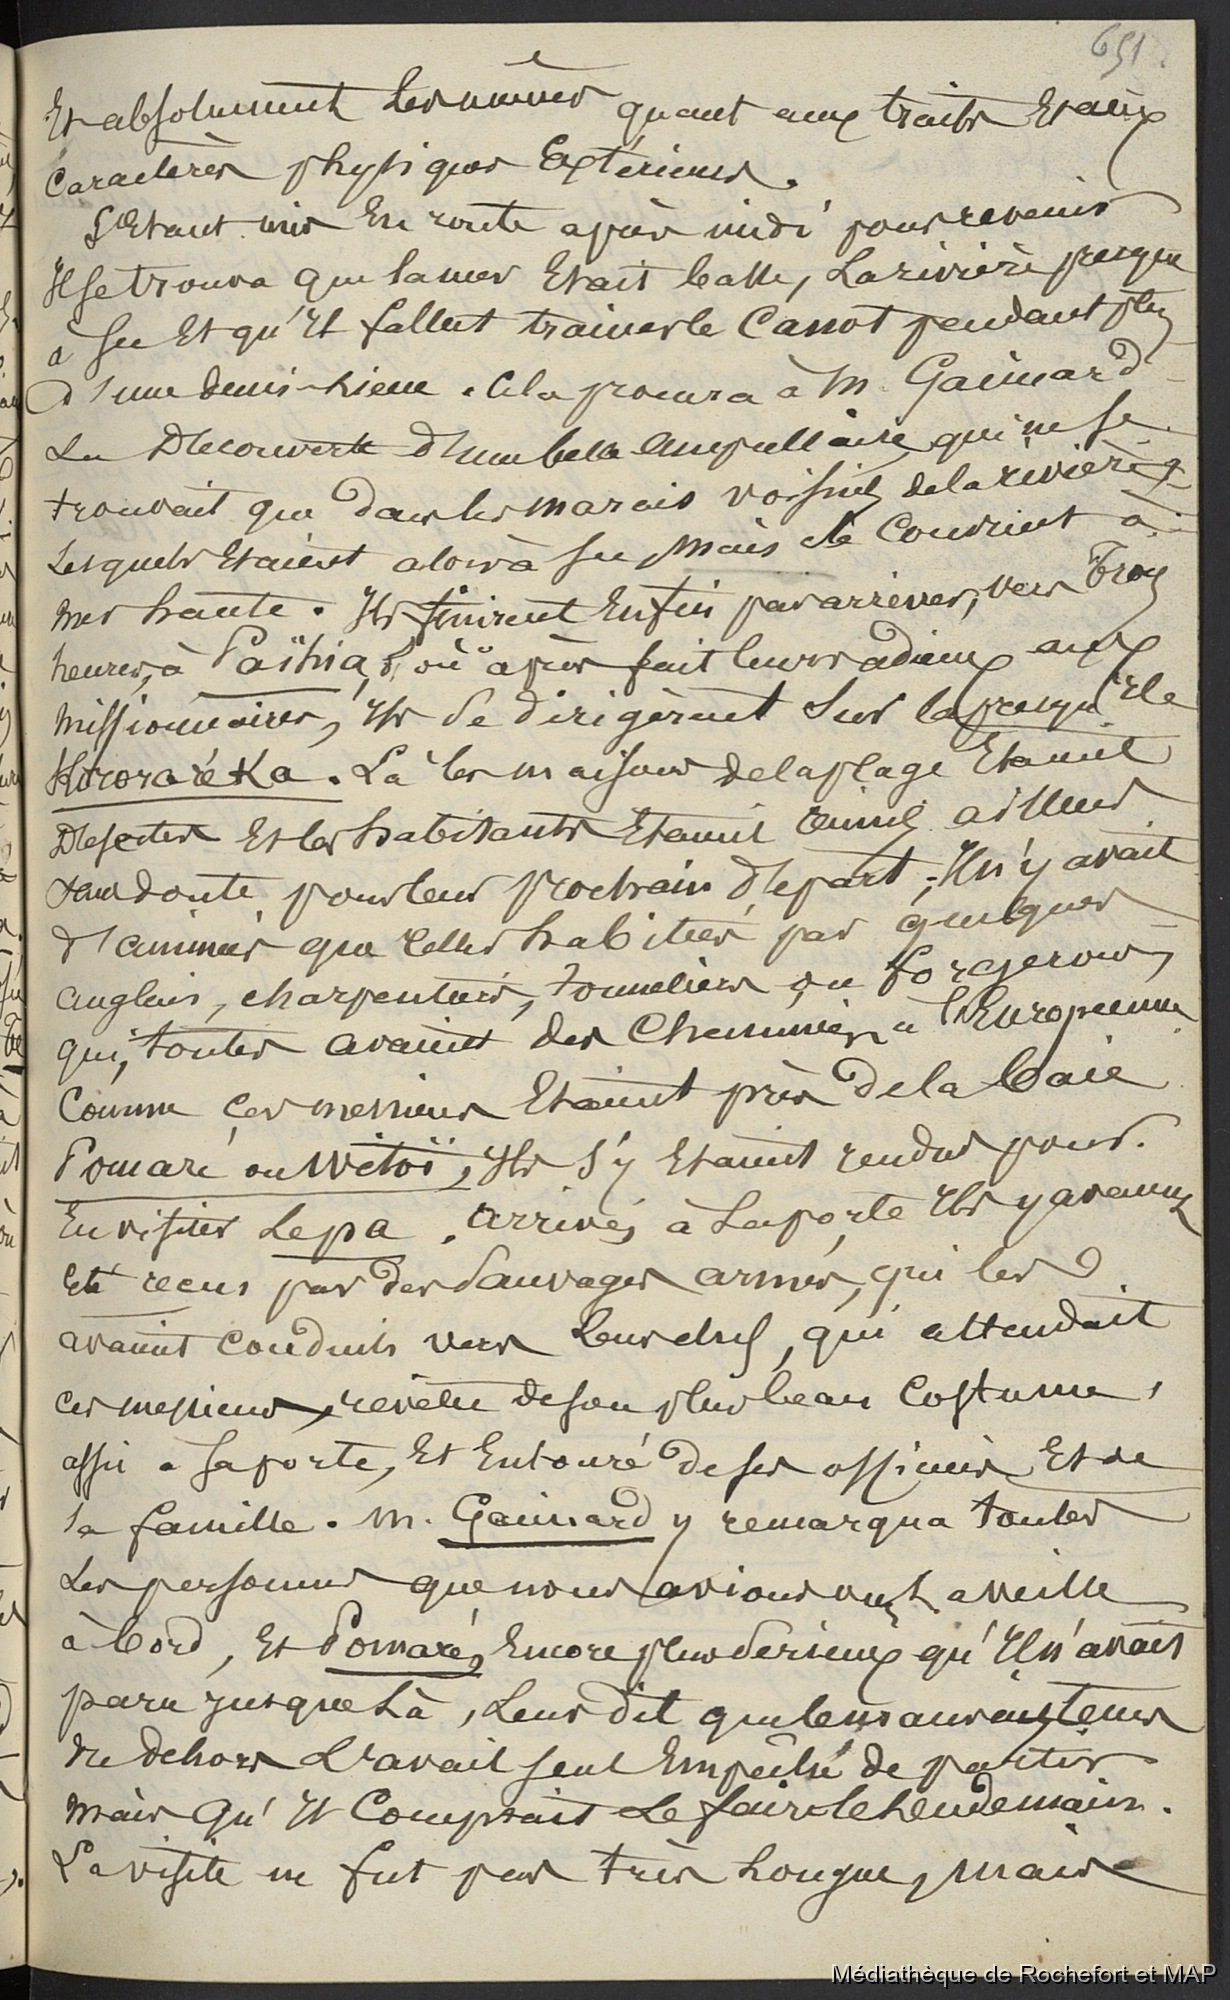 651
Et absolument les mêmes quant aux traits Et aux
Caractères physiques Extérieurs.
S'Etant mis En route après midi pour revenir
Il se trouva que la mer Etait basse, La rivière presque
à sec Et qu'Il fallut trainer le Canot pendant plus
d'une demi-lieue. Cela procura à M. Gaimard
La Découverte d'une belle Ampullaire, qui ne se
trouvait que dans les marais voisins de la rivière,
Lesquels Etaient alors à sec, Mais se Couvrient à
mer haute. Ils finirent Enfin par arriver, vers Trois
heures, à Païhia, d'où après fait leurs adieux aux
Missionnaires, Ils se dirigèrent Sur la presqu'Ile
Kororaréka. Là les maisons de la plage Etaient
Désertes Et les habitants Etaient réunis ailleurs
sans doute pour leur prochain départ; Il n'y avait
d'animées que celles habitées par quelques
anglais, charpentiers, tonneliers ou forgerons,
qui, toutes avaient des Cheminées à l'Européenne
Comme ces messieurs Etaient près de la baie
Pomaré ou Wetoï, Ils s'y Etaient rendus pour
En visiter Le pa. Arrivés à La porte Ils y avaient
Eté recus par des Sauvages armés, qui les
avaient conduits vers leur chef, qui attendait
ces messieurs, revêtu de son plus beau Costume,
assis a sa porte, Et Entouré de ses officiers Et de
sa famille. M. Gaimard y remarqua toutes
Les personnes que nous avions vues la veille
à bord, Et Pomaré, Encore plus serieux qu'Il n'avait
paru jusque là, Leur dit que le mauvais tems
du dehors L'avait seul Empêché de partir
mais qu'Il Comptait Le faire le lendemain.
La visite ne fut pas très longue, mais
Médiathèque de Rochefort et MAP